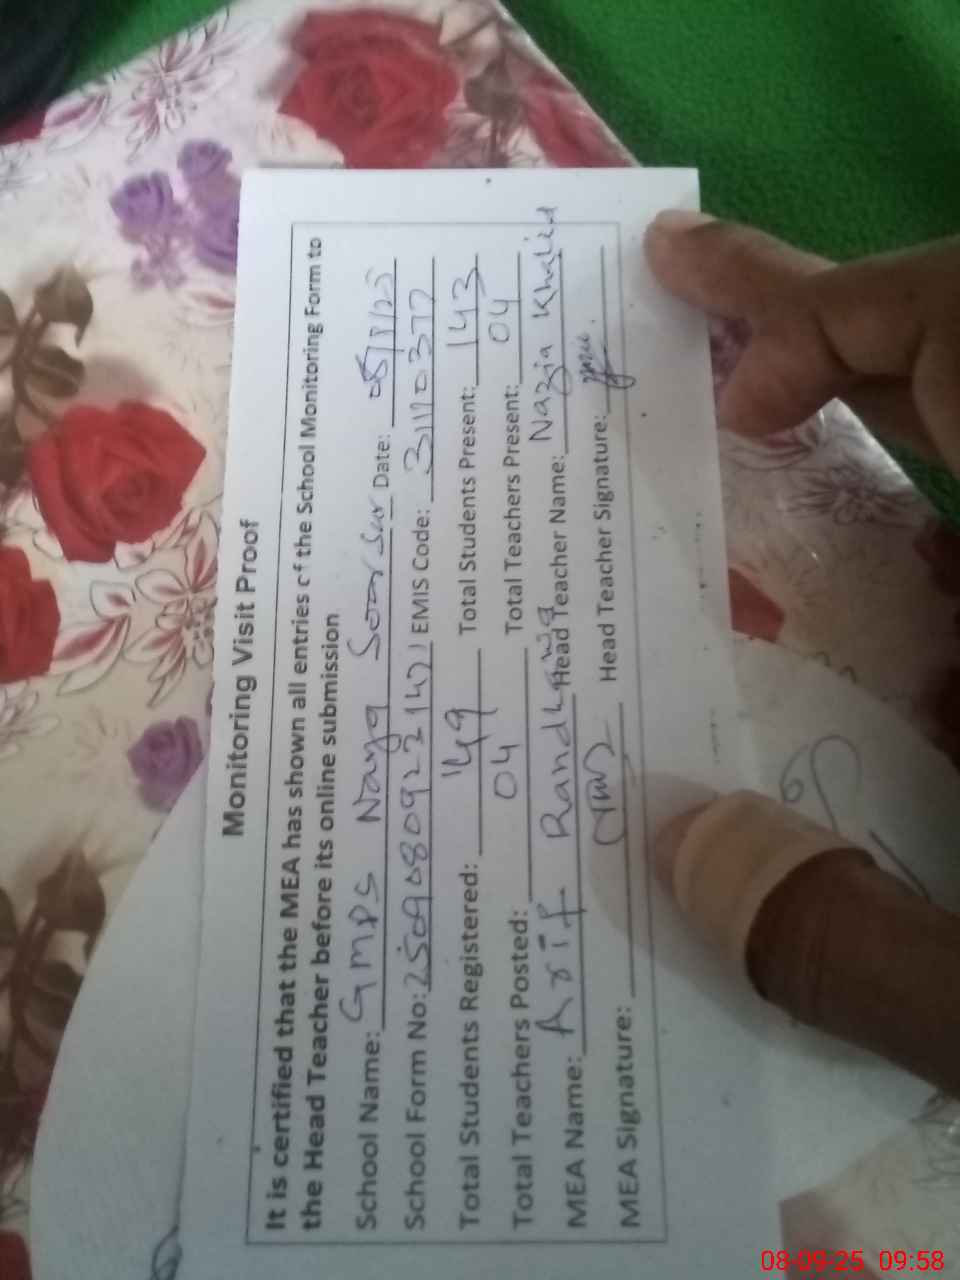 Monitoring Visit Proof
It is certified that the MEA has shown all entries of the School Monitoring Form to
the Head Teacher before its online submission
School Name: GMPS Naya Soorsur Date: 08/9/25
School Form No: 2509080922142 EMIS Code: 31120377
Total Students Registered: 149 Total Students Present: 143
Total Teachers Posted: 04 Total Teachers Present: 04
MEA Name: Arif Randhawa Head Teacher Name: Nazia Khalid
MEA Signature: Head Teacher Signature:
08-09-25 09:58